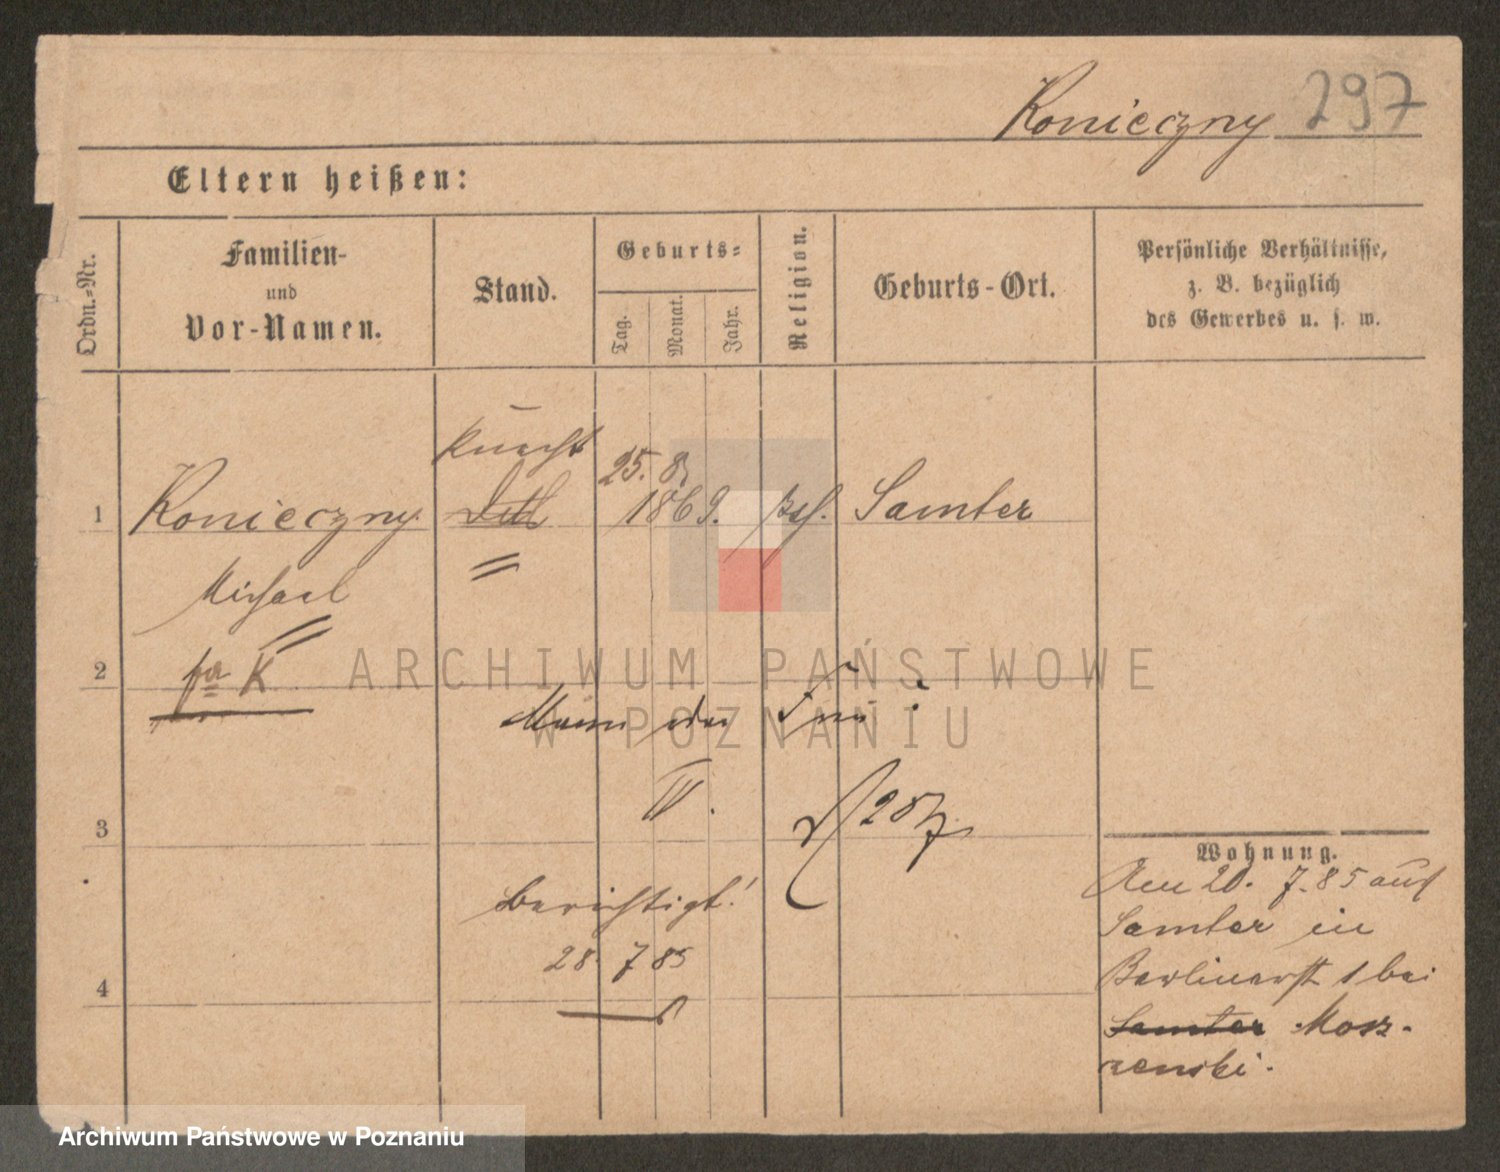 Konieczny 297
Eltern heißen:
Ordn.-Nr.
Familien-
und
Vor-Namen.
Stand.
Geburts-
Tag.
Monat.
Jahr.
Religion.
Geburts-Ort.
Persönliche Verhältnisse,
z. B. bezüglich
des Gewerbes u. s. w.
Knecht
25. 8
1 Konieczny 1869. Samter
Michael
2 K
ARCHIWUM PAŃSTWOWE
W POZNANIU
IV.
3
Wohnung.
Am 20. 7. 85 aus
Samter in
Berlinerst 1 bei
Samter Mosz-
zenski.
berichtigt!
28. 7 85
4
Archiwum Państwowe w Poznaniu